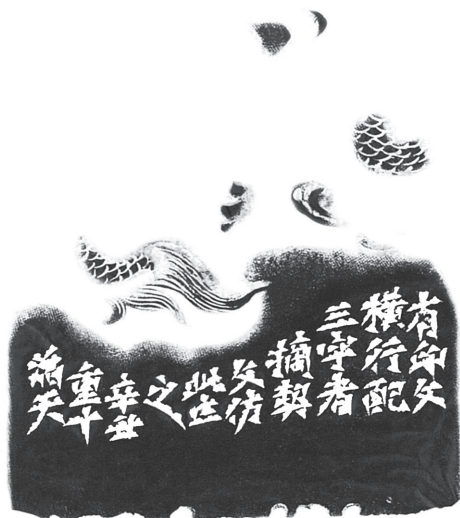 有印文
横行配
三字者
摘契
文仿
此
之
辛丑
重十
天